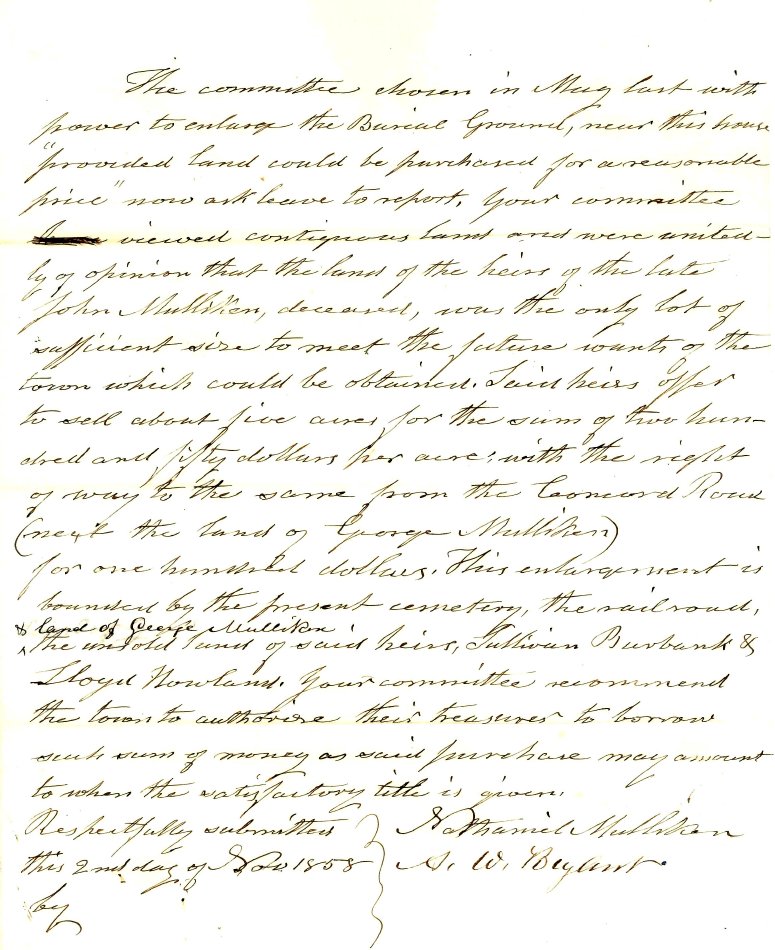 The committee chosen in May last with
power to enlarge the Burial Ground, near this house
"provided land could be purchased for a reasonable
price" now ask leave to report. Your committee
viewed contiguous land and were united-
ly of opinion that the land of the heirs of the late
John Mulliken, deceased, was the only lot of
sufficient size to meet the future wants of the
town which could be obtained. Said heirs offer
to sell about five acres for the sum of two hun-
dred and fifty dollars per acre: with the right
of way to the same from the Concord Road
(next the land of George Mulliken)
for one hundred dollars. This enlargement is
bounded by the present cemetery, the railroad,
& land of George Mulliken
the unsold land of said heirs, Sullivan Burbank &
Lloyd Howland. Your committee recommend
the town to authorize their treasurer to borrow
such sum of money as said purchase may amount
to when the satisfactory title is given.
Respectfully submitted } Nathaniel Mulliken
this 2nd day of Nov. 1858 A. W. Bryant.
by